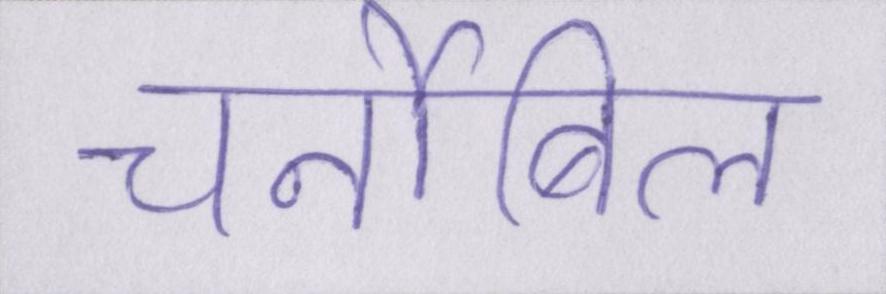 चर्नोबिल